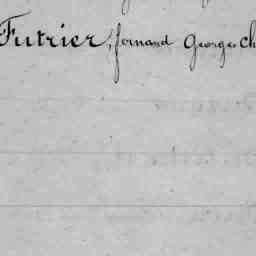 Futrier, fernand Georges Ch